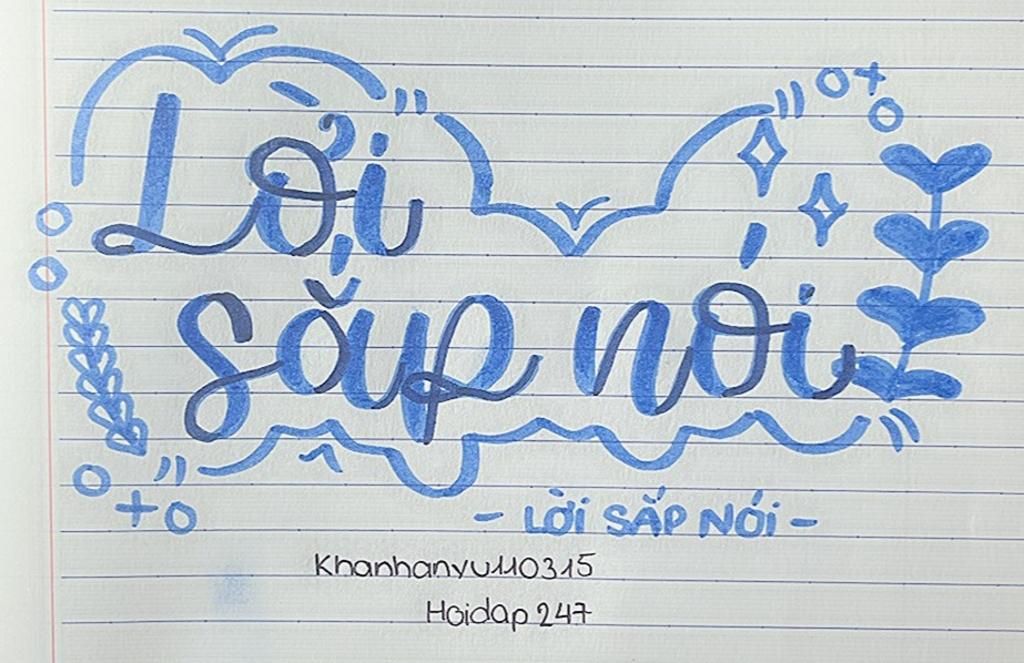 Lời
sắp nói
- LỜI SẮP NÓI -
Khanhanyu110315
Hoidap247